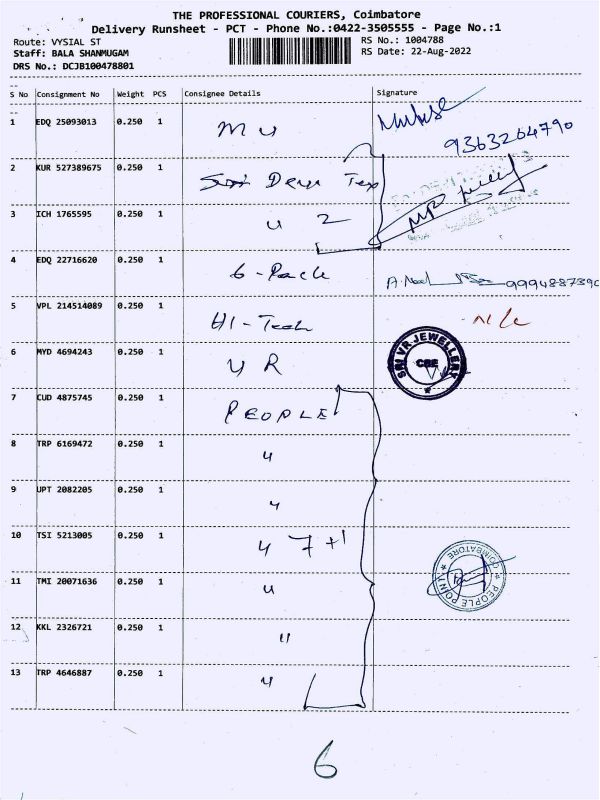 THE PROFESSIONAL COURIERS, Coimbatore
Delivery Runsheet - PCT - Phone No.:0422-3505555 - Page No.:1
Route: VYSIAL ST
RS No.: 1004788
Staff: BALA SHANMUGAM
RS Date: 22-Aug-2022
DRS No.: DCJB100478801
S No Consignment No Weight PCS Consignee Details Signature
1 EDQ 25093013 0.250 1 M U
9363264790
2 KUR 527389675 0.250 1 Devi Tex
3 ICH 1765595 0.250 1 u 2
4 EDQ 22716620 0.250 1 6-Pack 9994887390
5 VPL 214514089 0.250 1 HI-Tech N/C
6 MYD 4694243 0.250 1 Y R SRI VR JEWELLERY CBE
7 CUD 4875745 0.250 1 PEOPLE
8 TRP 6169472 0.250 1 "
9 UPT 2082205 0.250 1 "
10 TSI 5213005 0.250 1 " 7+1
11 TMI 20071636 0.250 1 " PEOPLE POINT COIMBATORE
12 KKL 2326721 0.250 1 "
13 TRP 4646887 0.250 1 "
6